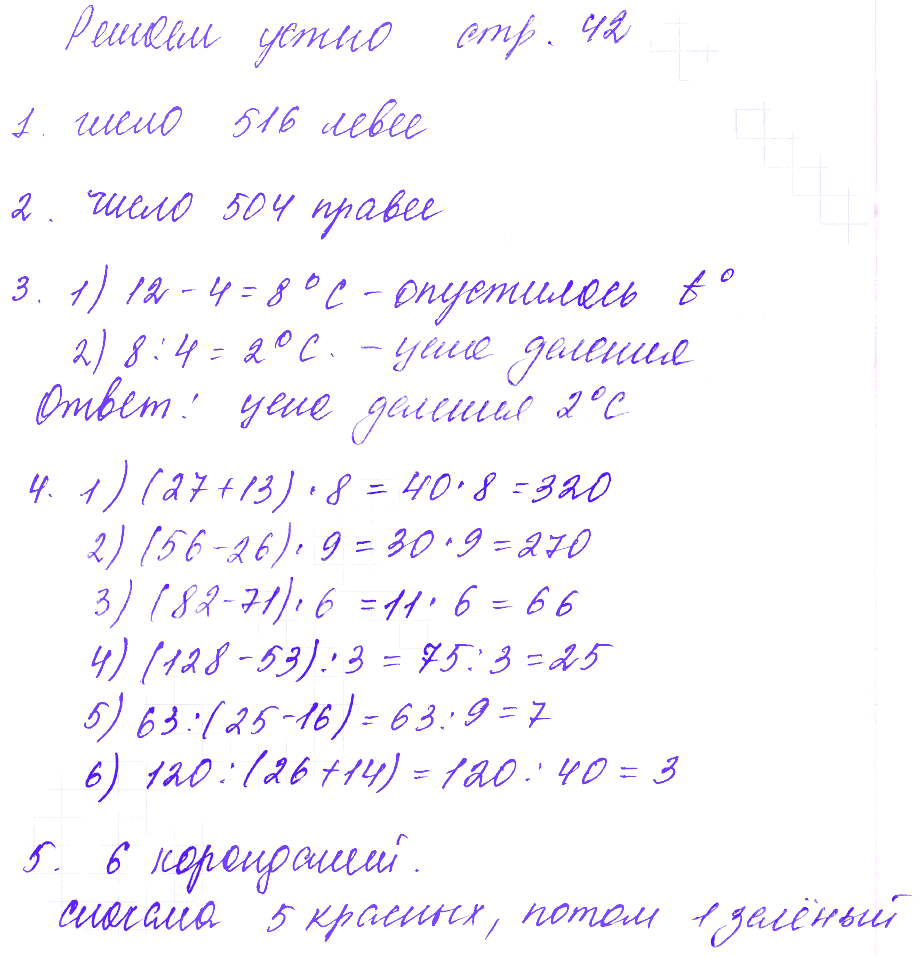 Решаем устно стр. 42
1. число 516 левее
2. число 504 правее
3. 1) 12 - 4 = 8°C - опустилась t°
2) 8 : 4 = 2°C. - цена деления
Ответ: цена деления 2°C
4. 1) (27 + 13) · 8 = 40 · 8 = 320
2) (56 - 26) · 9 = 30 · 9 = 270
3) (82 - 71) · 6 = 11 · 6 = 66
4) (128 - 53) : 3 = 75 : 3 = 25
5) 63 : (25 - 16) = 63 : 9 = 7
6) 120 : (26 + 14) = 120 : 40 = 3
5. 6 карандашей.
сначала 5 красных, потом 1 зелёный